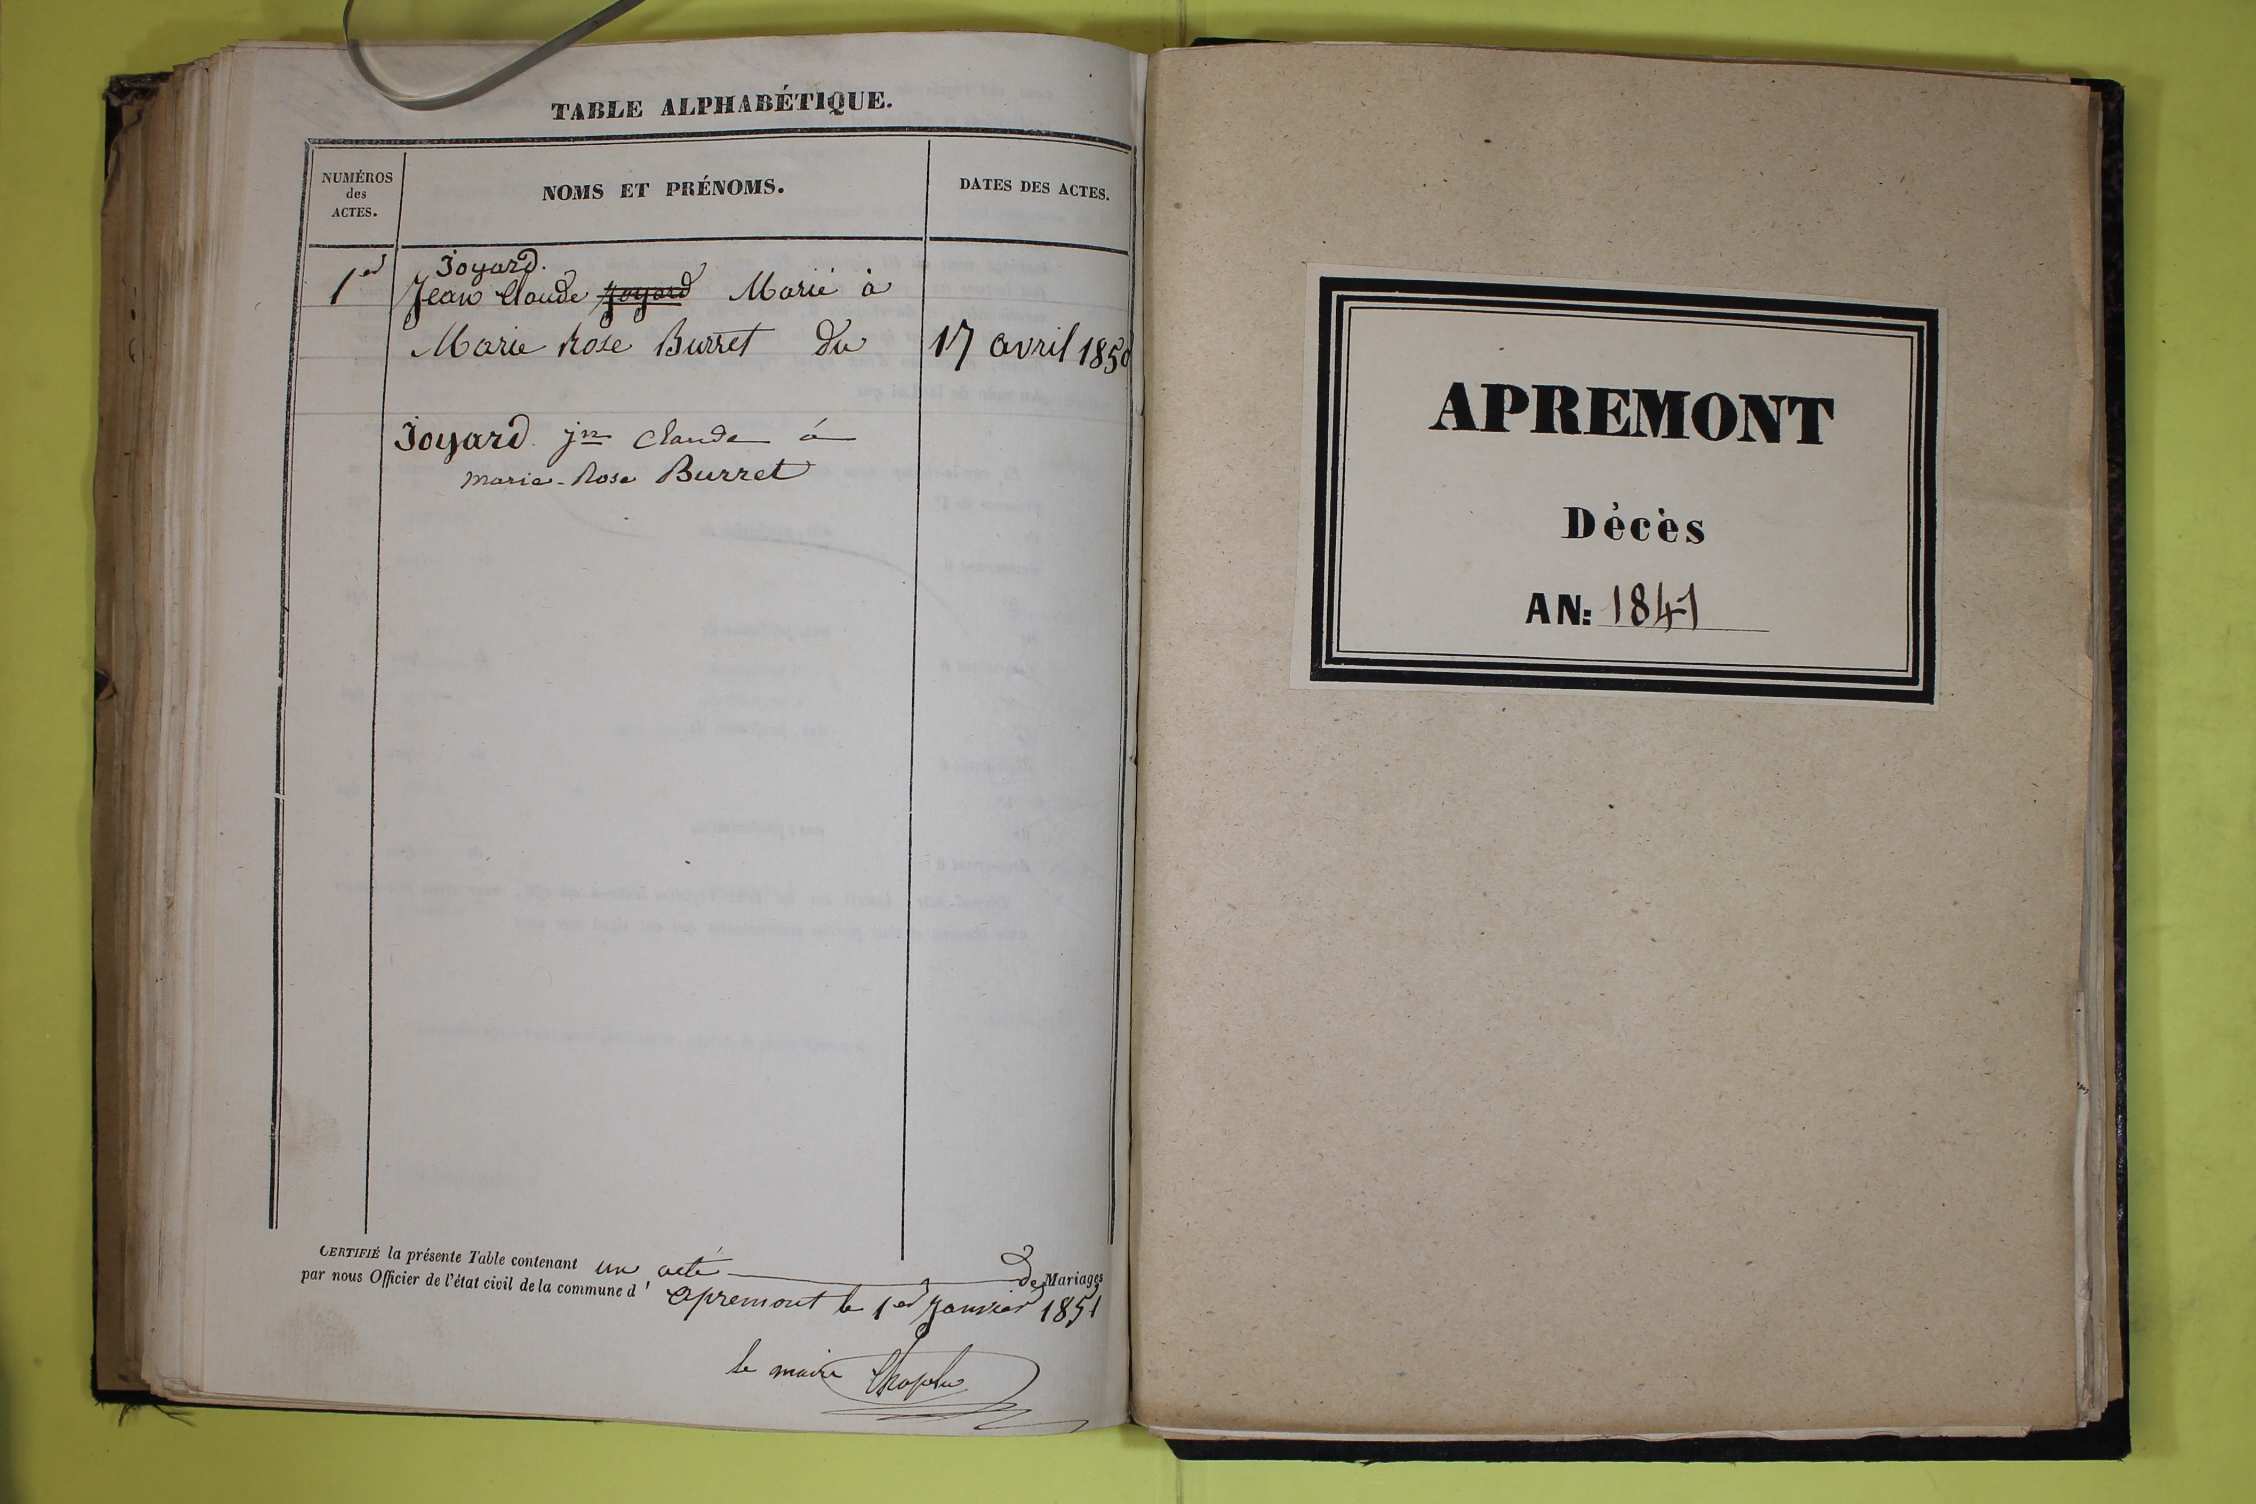 TABLE ALPHABÉTIQUE.
NUMÉROS
des
ACTES.
NOMS ET PRÉNOMS.
DATES DES ACTES.
Joyard.
1er Jean Claude Joyard Marié à
Marie Rose Burret du 17 avril 1850
Joyard jn Claude à
Marie-Rose Burret
CERTIFIÉ la présente Table contenant un acte de Mariages
par nous Officier de l'état civil de la commune d' apremont le 1er Janvier 1851
le maire
APREMONT
Décès
AN: 1841